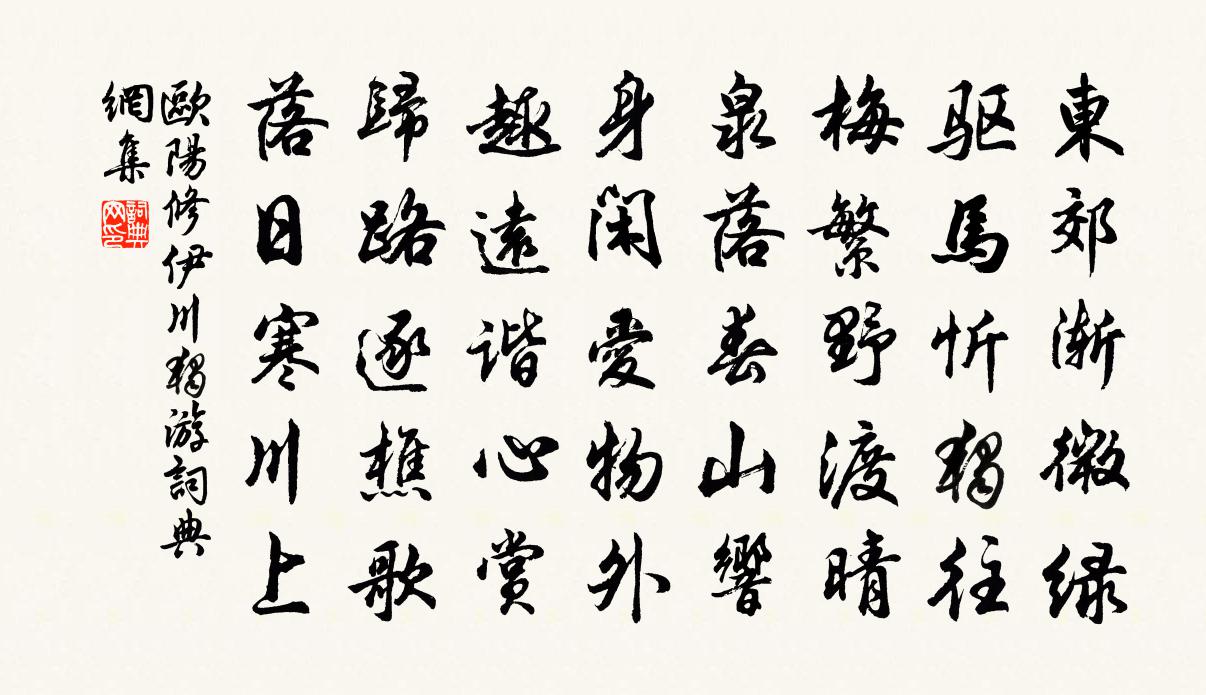 東郊漸微緑
驱馬忻獨往
梅繁野渡晴
泉落春山響
身閑愛物外
趣遠諧心賞
歸路逐樵歌
落日寒川上
歐陽修伊川獨游詞典
網集
詞典网印